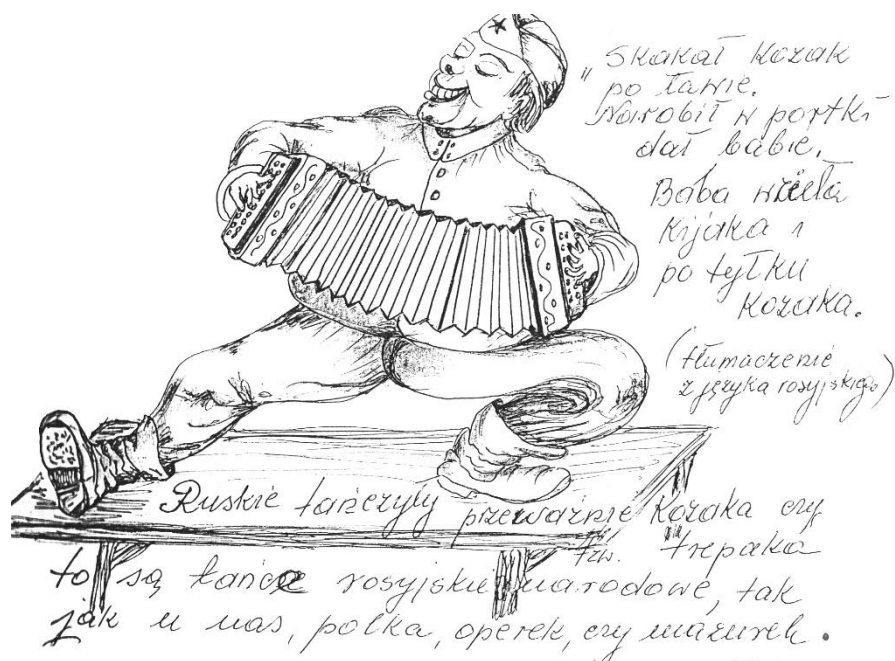 „Skakał kozak
po ławie.
Narobił w portki
dał babie.
Baba wzieła
kijaka i
po tyłku
kozaka.
(tłumaczenie
z języka rosyjskiego)
Ruskie tańczyły przeważnie kozaka czy
tzw. "trepaka"
to są tańce rosyjskie narodowe, tak
jak u nas, polka, operek, czy mazurek.